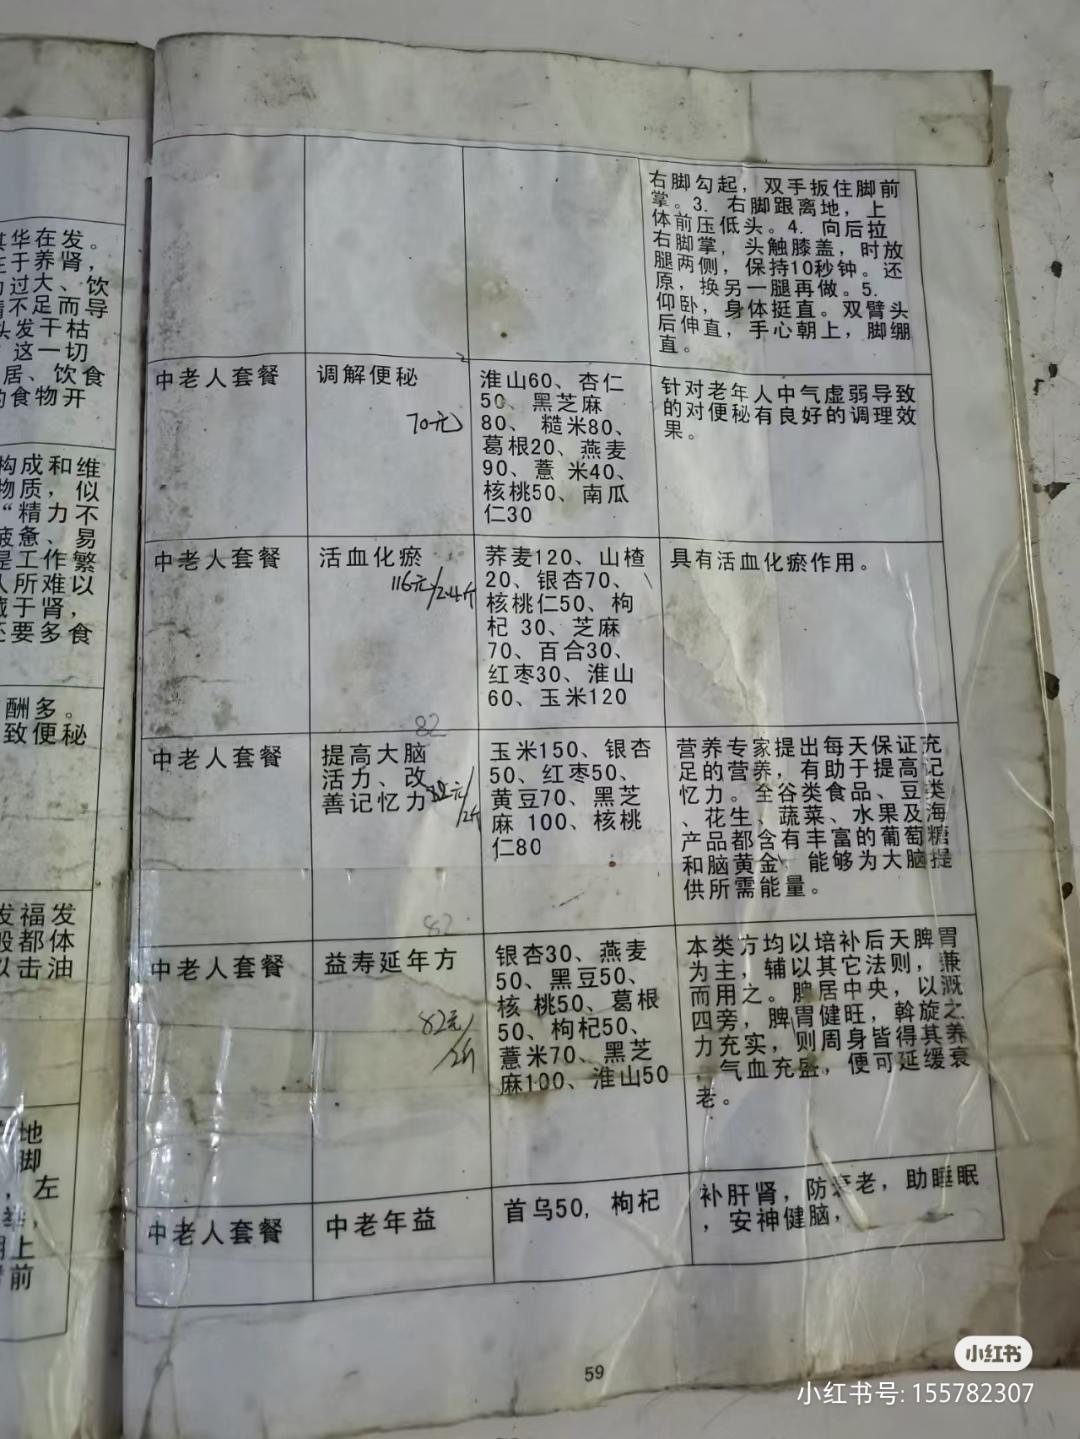 华在发。
于养肾，
过大、饮
不足而导
发干枯
这一切
居、饮食
的食物开
构成和维
物质，似
“精力不
疲惫、易
是工作繁
人所难以
藏于肾，
还要多食
酬多。
致便秘
发福发
般都体
以击油
地
脚
，左
上
前
右脚勾起，双手扳住脚前
掌。3. 右脚跟离地，上
体前压低头。4. 向后拉
右脚掌，头触膝盖，时放
腿两侧，保持10秒钟。还
原，换另一腿再做。5.
仰卧，身体挺直。双臂头
后伸直，手心朝上，脚绷
直。
中老人套餐
调解便秘
70元
淮山60、杏仁
50、黑芝麻
80、 糙米80、
葛根20、燕麦
90、薏 米40、
核桃50、南瓜
仁30
针对老年人中气虚弱导致
的对便秘有良好的调理效
果。
中老人套餐
活血化瘀
116元/2.4斤
荞麦120、山楂
20、银杏70、
核桃仁50、枸
杞 30、芝麻
70、百合30、
红枣30、淮山
60、玉米120
具有活血化瘀作用。
82
中老人套餐
提高大脑
活力、改
善记忆力
元/2斤
玉米150、银杏
50、红枣50、
黄豆70、黑芝
麻 100、核桃
仁80
营养专家提出每天保证充
足的营养，有助于提高记
忆力。全谷类食品、豆类
、花生、蔬菜、水果及海
产品都含有丰富的葡萄糖
和脑黄金，能够为大脑提
供所需能量。
82
中老人套餐
益寿延年方
82元/2斤
银杏30、燕麦
50、黑豆50、
核 桃50、葛根
50、枸杞50、
薏米70、黑芝
麻100、淮山50
本类方均以培补后天脾胃
为主，辅以其它法则，兼
而用之。脾居中央，以溉
四旁，脾胃健旺，斡旋之
力充实，则周身皆得其养
，气血充盛，便可延缓衰
老。
中老人套餐
中老年益
首乌50，枸杞
补肝肾，防衰老，助睡眠
，安神健脑，
59
小红书
小红书号: 155782307